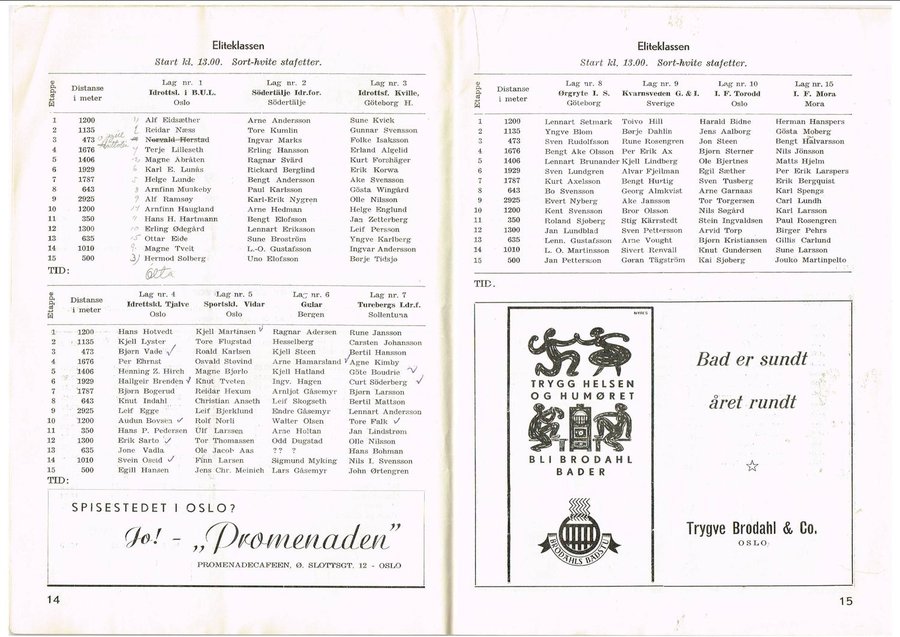 Eliteklassen
Start kl. 13.00. Sort-hvite stafetter.
Etappe Distanse i meter Lag nr. 1 Idrottsl. i B.U.L. Oslo Lag nr. 2 Södertälje Idr.for. Södertälje Lag nr. 3 Idrottsf. Kville, Göteborg H.
1 1200 Alf Eidsæther Arne Andersson Sune Kvick
2 1135 Reidar Næss Tore Kumlin Gunnar Svensson
3 473 Norvald Herstad Ingvar Marks Folke Isaksson
4 1676 Terje Lilleseth Erling Hansson Erland Algelid
5 1406 Magne Abråten Ragnar Svärd Kurt Forshäger
6 1929 Karl E. Lunås Richard Berglind Erik Korwa
7 1787 Helge Lunde Bengt Andersson Åke Svensson
8 643 Arnfinn Munkeby Paul Karlsson Gösta Wingård
9 2925 Alf Ramsøy Karl-Erik Nygren Olle Nilsson
10 1200 Arnfinn Haugland Arne Hedman Helge Englund
11 350 Hans H. Hartmann Bengt Elofsson Jan Zetterberg
12 1300 Erling Ødegård Lennart Eriksson Leif Persson
13 635 Ottar Eide Sune Broström Yngve Karlberg
14 1010 Magne Tveit L.-O. Gustafsson Ingvar Andersson
15 500 Hermod Solberg Uno Elofsson Borje Tidsjø
TID:
Etappe Distanse i meter Lag nr. 4 Idrettskl. Tjalve Oslo Lag nr. 5 Sportskl. Vidar Oslo Lag nr. 6 Gular Bergen Lag nr. 7 Turebergs I.dr.f. Sollentuna
1 1200 Hans Hotvedt Kjell Martinsen Ragnar Adersen Rune Jansson
2 1135 Kjell Lyster Tore Flugstad Hesselberg Carsten Johansson
3 473 Bjørn Vade Roald Karlsen Kjell Steen Bertil Hansson
4 1676 Per Ehrnst Osvald Støvind Arne Hamarsland Agne Kimby
5 1406 Henning Z. Hirch Magne Bjørlo Kjell Hatland Göte Boudrie
6 1929 Hallgeir Brenden Knut Tveten Ingv. Hagen Curt Söderberg
7 1787 Bjørn Bogerud Reidar Hexum Arnljot Gåsemyr Bjørn Larsson
8 643 Knut Indahl Christian Anseth Leif Skogseth Bertil Mattson
9 2925 Leif Egge Leif Bjerklund Endre Gåsemyr Lennart Andersson
10 1200 Audun Boysen Rolf Norli Walter Olsen Tore Falk
11 350 Hans P. Pedersen Ulf Larssen Arne Holtan Jan Lindström
12 1300 Erik Sarto Tor Thomassen Odd Dugstad Olle Nilsson
13 635 Jone Vadla Ole Jacob Aas ?? ? Hans Bohman
14 1010 Svein Oseid Finn Larsen Sigmund Myking Nils I. Svensson
15 500 Egill Hansen Jens Chr. Meinich Lars Gåsemyr John Ørtengren
TID:
SPISESTEDET I OSLO?
Jo! - „Promenaden”
PROMENADECAFEEN, Ø. SLOTTSGT. 12 - OSLO
14
Eliteklassen
Start kl. 13.00. Sort-hvite stafetter.
Etappe Distanse i meter Lag nr. 8 Ørgryte I. S. Göteborg Lag nr. 9 Kvarnsveden G. & I. Sverige Lag nr. 10 I. F. Torodd Oslo Lag nr. 15 I. F. Mora Mora
1 1200 Lennart Setmark Toivo Hill Harald Bidne Herman Hanspers
2 1135 Yngve Blom Børje Dahlin Jens Aalborg Gösta Moberg
3 473 Sven Rudolfsson Rune Rosengren Jon Steen Bengt Halvarsson
4 1676 Bengt Ake Olsson Per Erik Ax Bjørn Sterner Nils Jönsson
5 1406 Lennart Brunander Kjell Lindberg Ole Bjertnes Matts Hjelm
6 1929 Sven Lundgren Alvar Fjellman Egil Sæther Per Erik Larspers
7 1787 Kurt Axelsson Bengt Hurtig Sven Tusberg Erik Bergquist
8 643 Bo Svensson Georg Almkvist Arne Garnaas Karl Spengs
9 2925 Evert Nyberg Ake Jansson Tor Torgersen Carl Lundh
10 1200 Kent Svensson Bror Olsson Nils Søgård Karl Larsson
11 350 Roland Sjøberg Stig Kärrstedt Stein Ingvaldsen Paul Rosengren
12 1300 Jan Lundblad Sven Pettersson Arvid Torp Birger Pehrs
13 635 Lenn. Gustafsson Arne Vought Bjørn Kristiansen Gillis Carlund
14 1010 L. O. Martinsson Sivert Renvall Knut Gundersen Sune Larsson
15 500 Jan Pettersson Gøran Tägström Kai Sjøberg Jouko Martinpelto
TID.
NYRES
TRYGG HELSEN
OG HUMØRET
BLI BRODAHL
BADER
BRODAHLS BADSTU
Bad er sundt
året rundt
Trygve Brodahl & Co.
OSLO
15